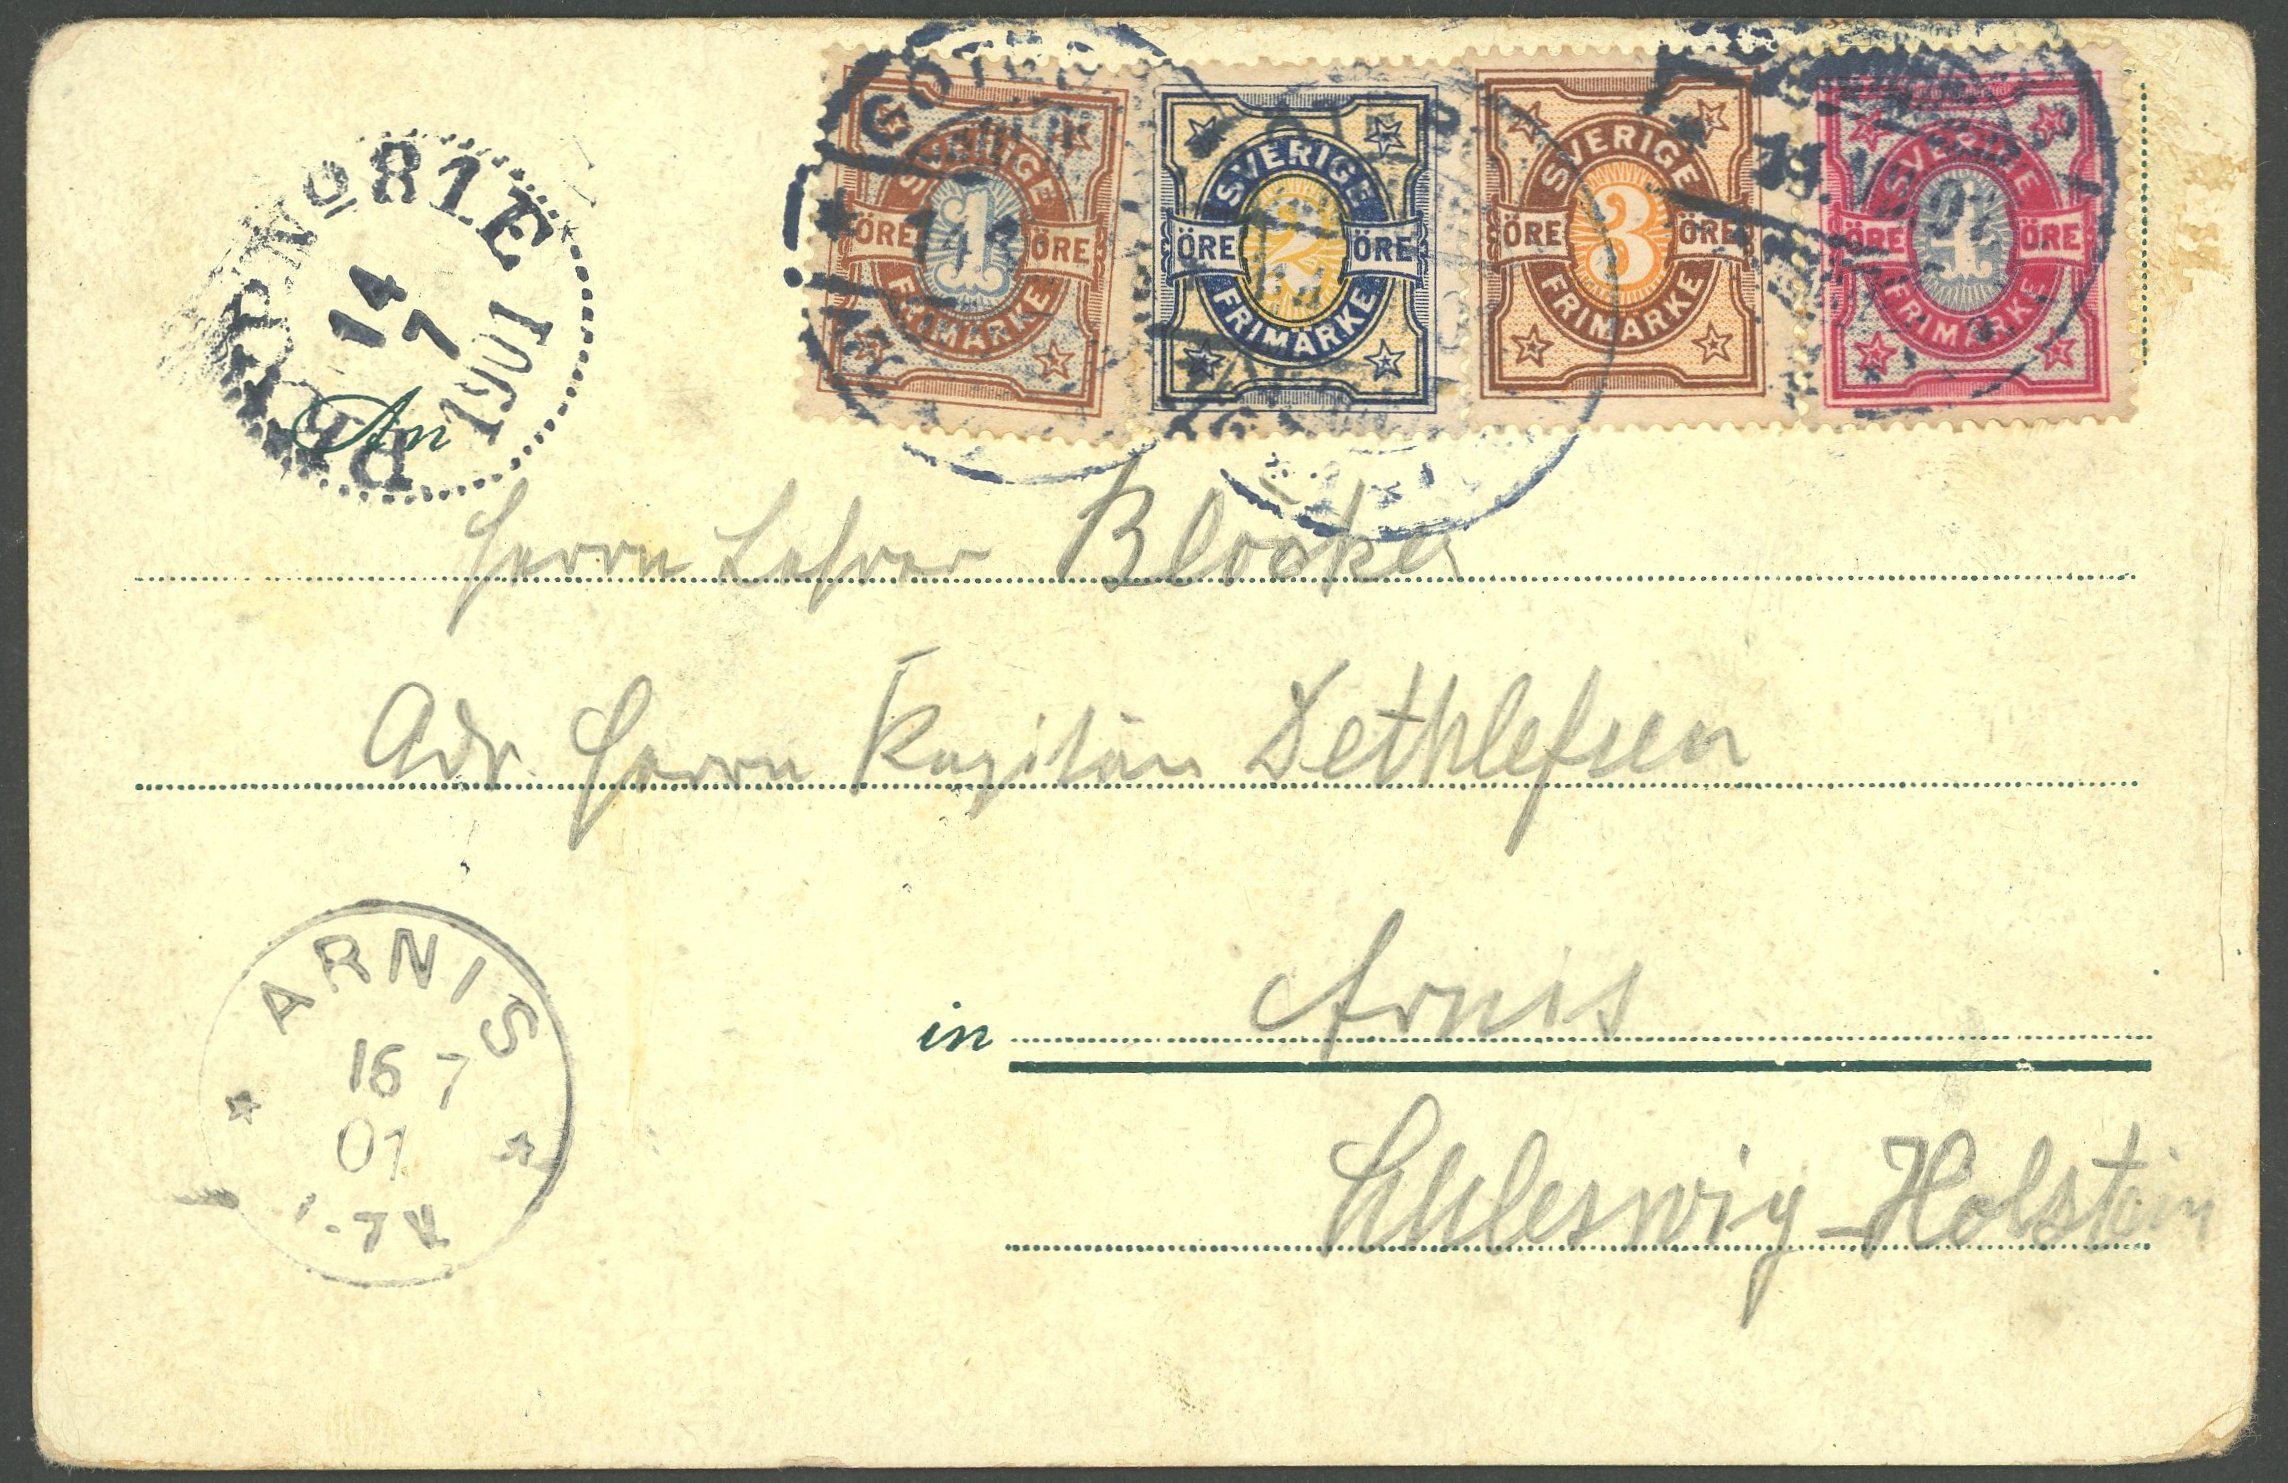 SVERIGE 1 ÖRE ÖRE FRIMÄRKE
SVERIGE 2 ÖRE ÖRE FRIMÄRKE
SVERIGE 3 ÖRE ÖRE FRIMÄRKE
SVERIGE 4 ÖRE ÖRE FRIMÄRKE
PKXP No 81 E
14
7
1901
An
Herrn Lehrer Blocker
Adr. Herrn Kapitän Dethlefsen
in Arnis
Schleswig-Holstein
ARNIS
16 7
01
-7V